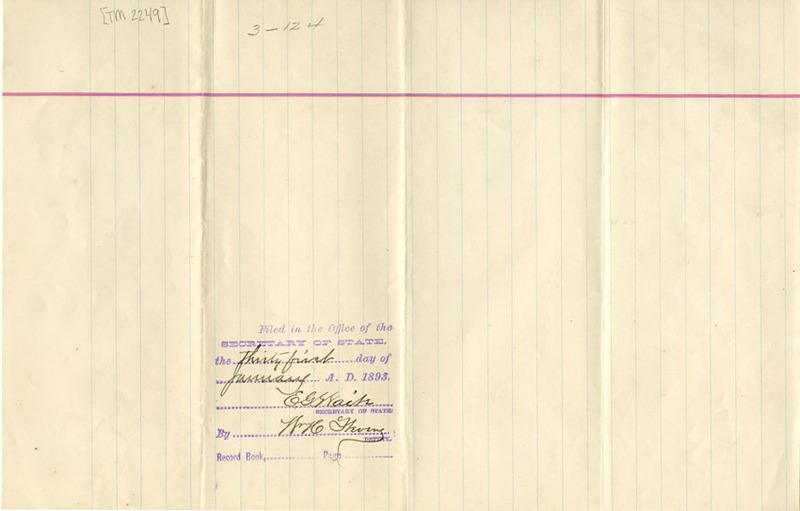 [TM 2249]
3-124
Filed in the Office of the
SECRETARY OF STATE,
the Thirty first day of
January A. D. 1893.
E G Waite
SECRETARY OF STATE
By Wm H
DEPUTY.
Record Book, Page